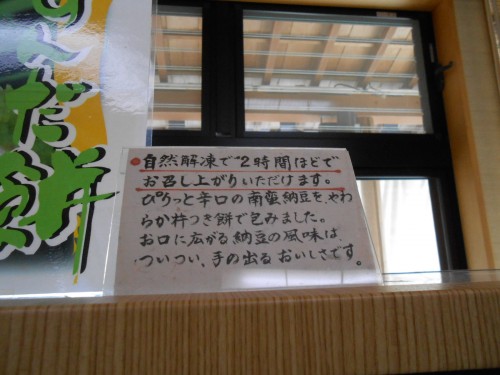 ずんだ餅
自然解凍で2時間ほどで
お召し上がりいただけます。
ぴりっと辛口の南蛮納豆を、やわ
らか杵つき餅で包みました。
お口に広がる納豆の風味は
ついつい、手の出るおいしさです。